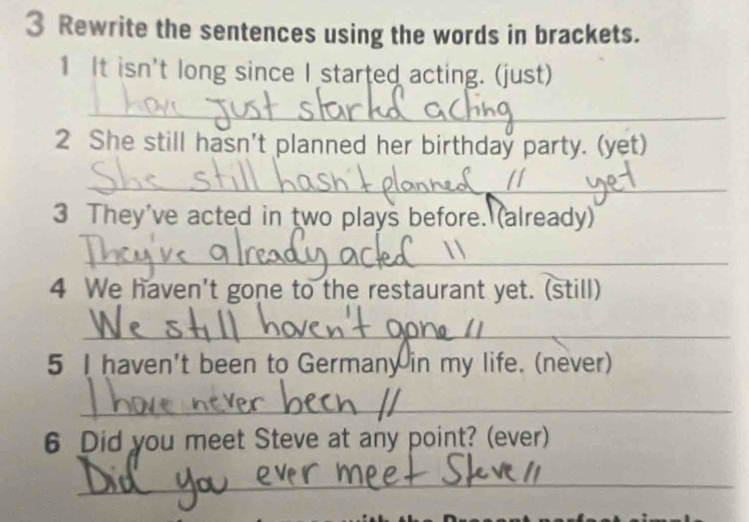 3 Rewrite the sentences using the words in brackets.
1 It isn't long since I started acting. (just)
I have just started acting
2 She still hasn't planned her birthday party. (yet)
She still hasn't planned // yet
3 They've acted in two plays before. (already)
They've already acted \\
4 We haven't gone to the restaurant yet. (still)
We still haven't gone //
5 I haven't been to Germany in my life. (never)
I have never been //
6 Did you meet Steve at any point? (ever)
Did you ever meet Steve //